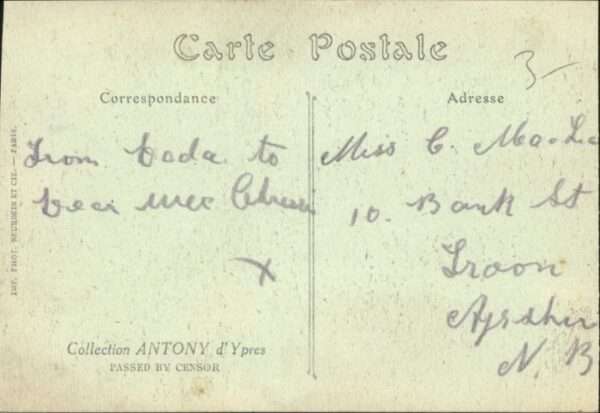 Carte Postale
3-
Correspondance
Adresse
From Dada to
Dear wee
x
Miss C.
10. Bank St
Troon
N. B
Collection ANTONY d'Ypres
PASSED BY CENSOR
IMP. PHOT. NEURDEIN ET CIE. — PARIS.